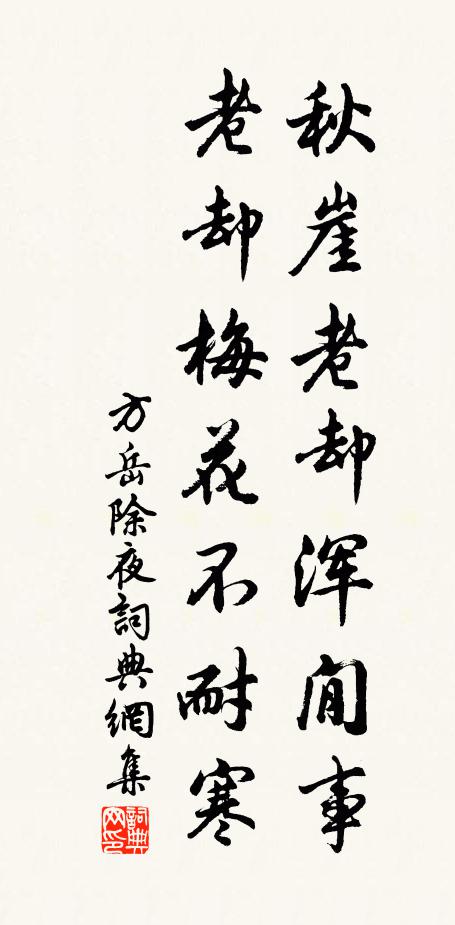 秋崖老却浑闲事
老却梅花不耐寒
方岳除夜詞典網集
詞典网印